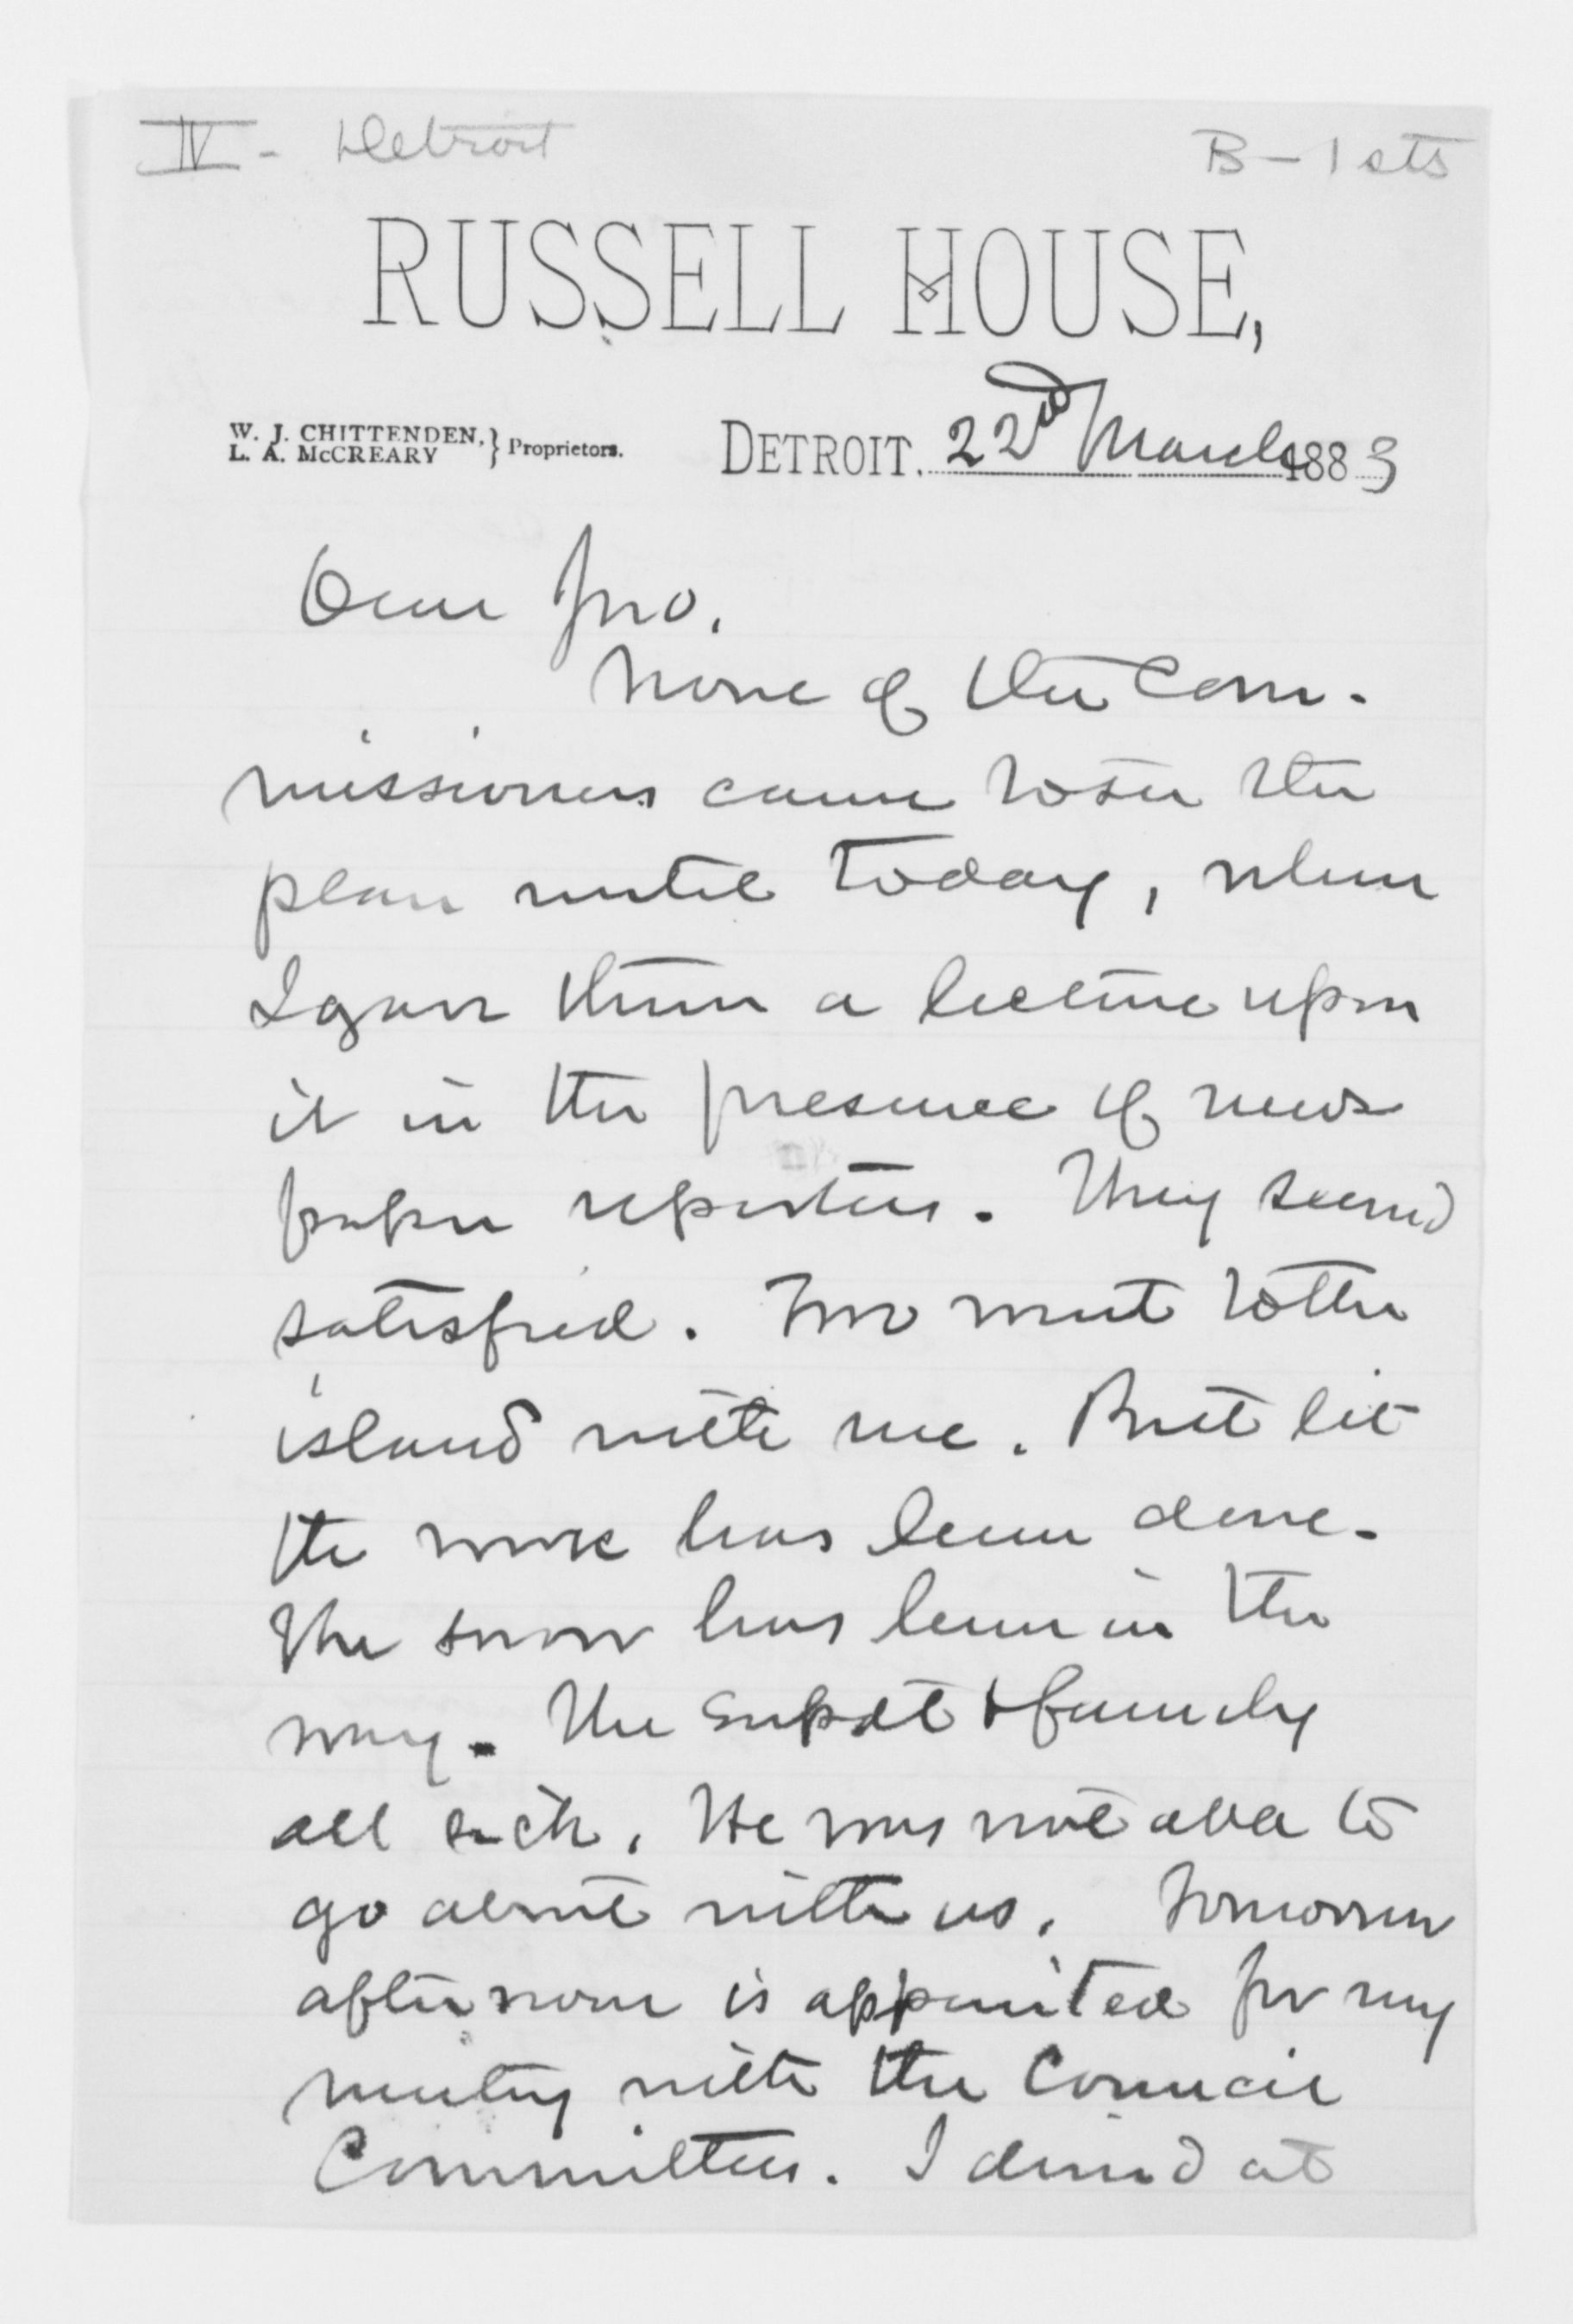 IV - Detroit
B - 1 sts
RUSSELL HOUSE,
W. J. CHITTENDEN,
L. A. McCREARY } Proprietors.
DETROIT. 22nd March 1883
Dear Jno.
None of the Com-
missioners came to see the
plan until today, when
I gave them a lecture upon
it in the presence of news
paper reporters. They seemd
satisfied. Two went to the
island with me. But lit
the work has been done.
The snow has been in the
way. The Supdt & family
all sick. He was not able to
go about with us. Tomorrow
afternoon is appointed for my
meeting with the Council
Committees. I dined at